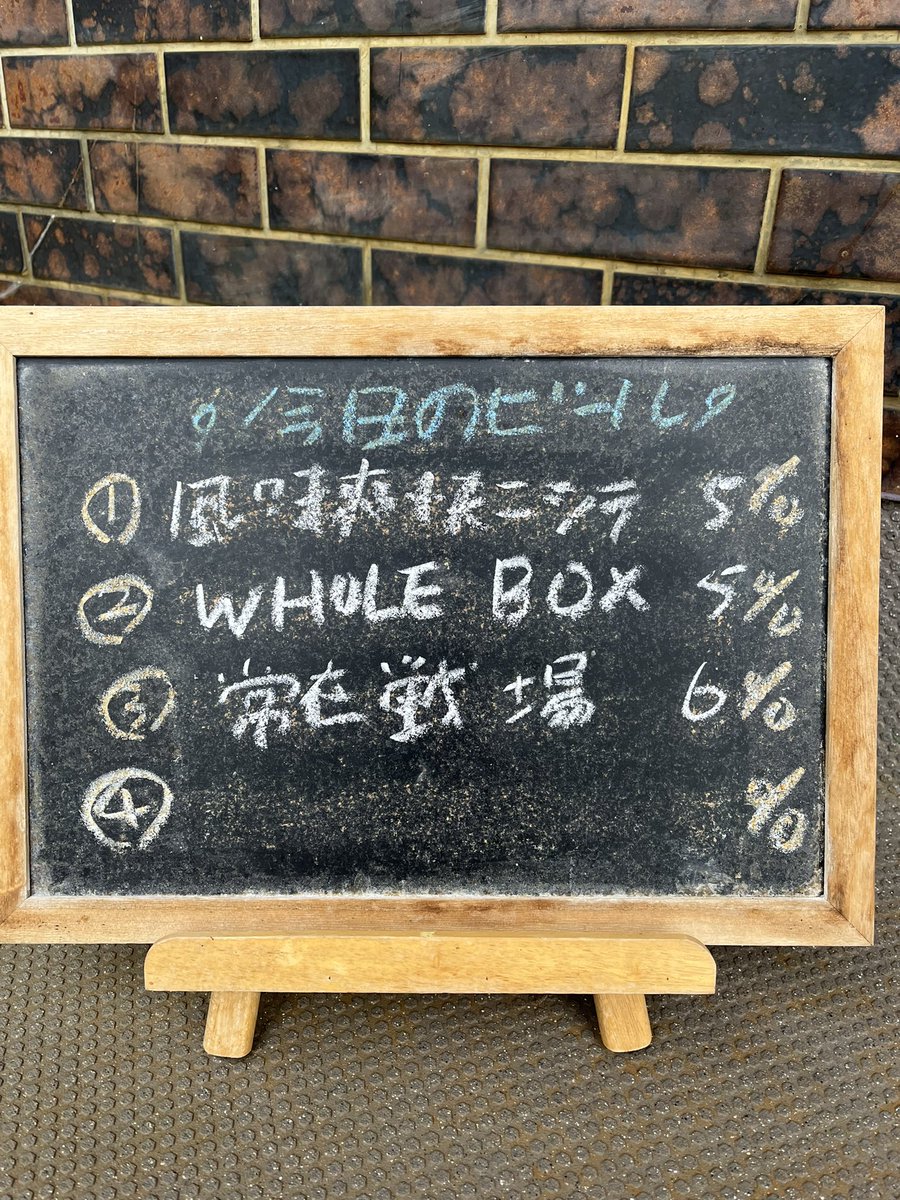 今日のビール
① 風味爽快ニシテ 5%
② WHOLE BOX 5%
③ 常在戦場 6%
④ %